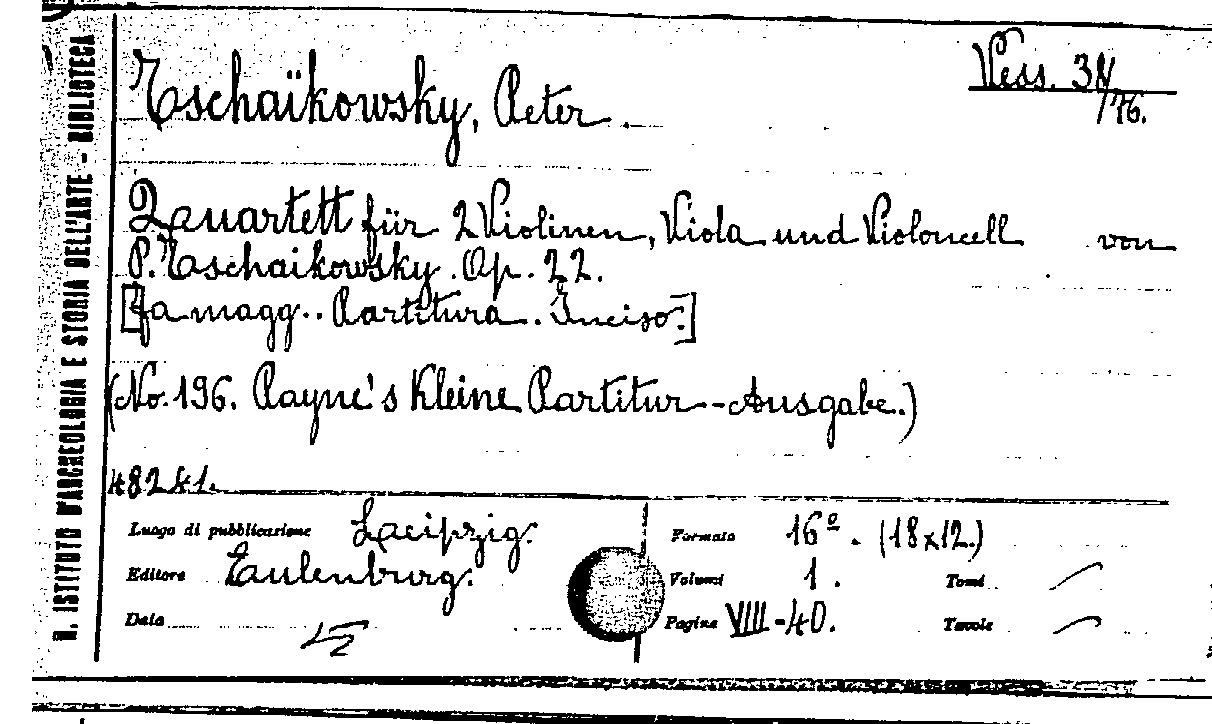 R. ISTITUTO D'ARCHEOLOGIA E STORIA DELL'ARTE - BIBLIOTECA
Tschaïkowsky, Peter.
Vess. 34/76.
Quartett für 2 Violinen, Viola und Violoncell von
P. Tschaikowsky. Op. 22.
[fa magg.. Partitura. Inciso.]
(No. 196. Payne's Kleine Partitur-Ausgabe.)
48241.
Luogo di pubblicazione Leipzig.
Editore Eulenburg.
Data
Formato 16º. (18x12.)
Volumi 1. Tomi
Pagine VIII-40. Tavole